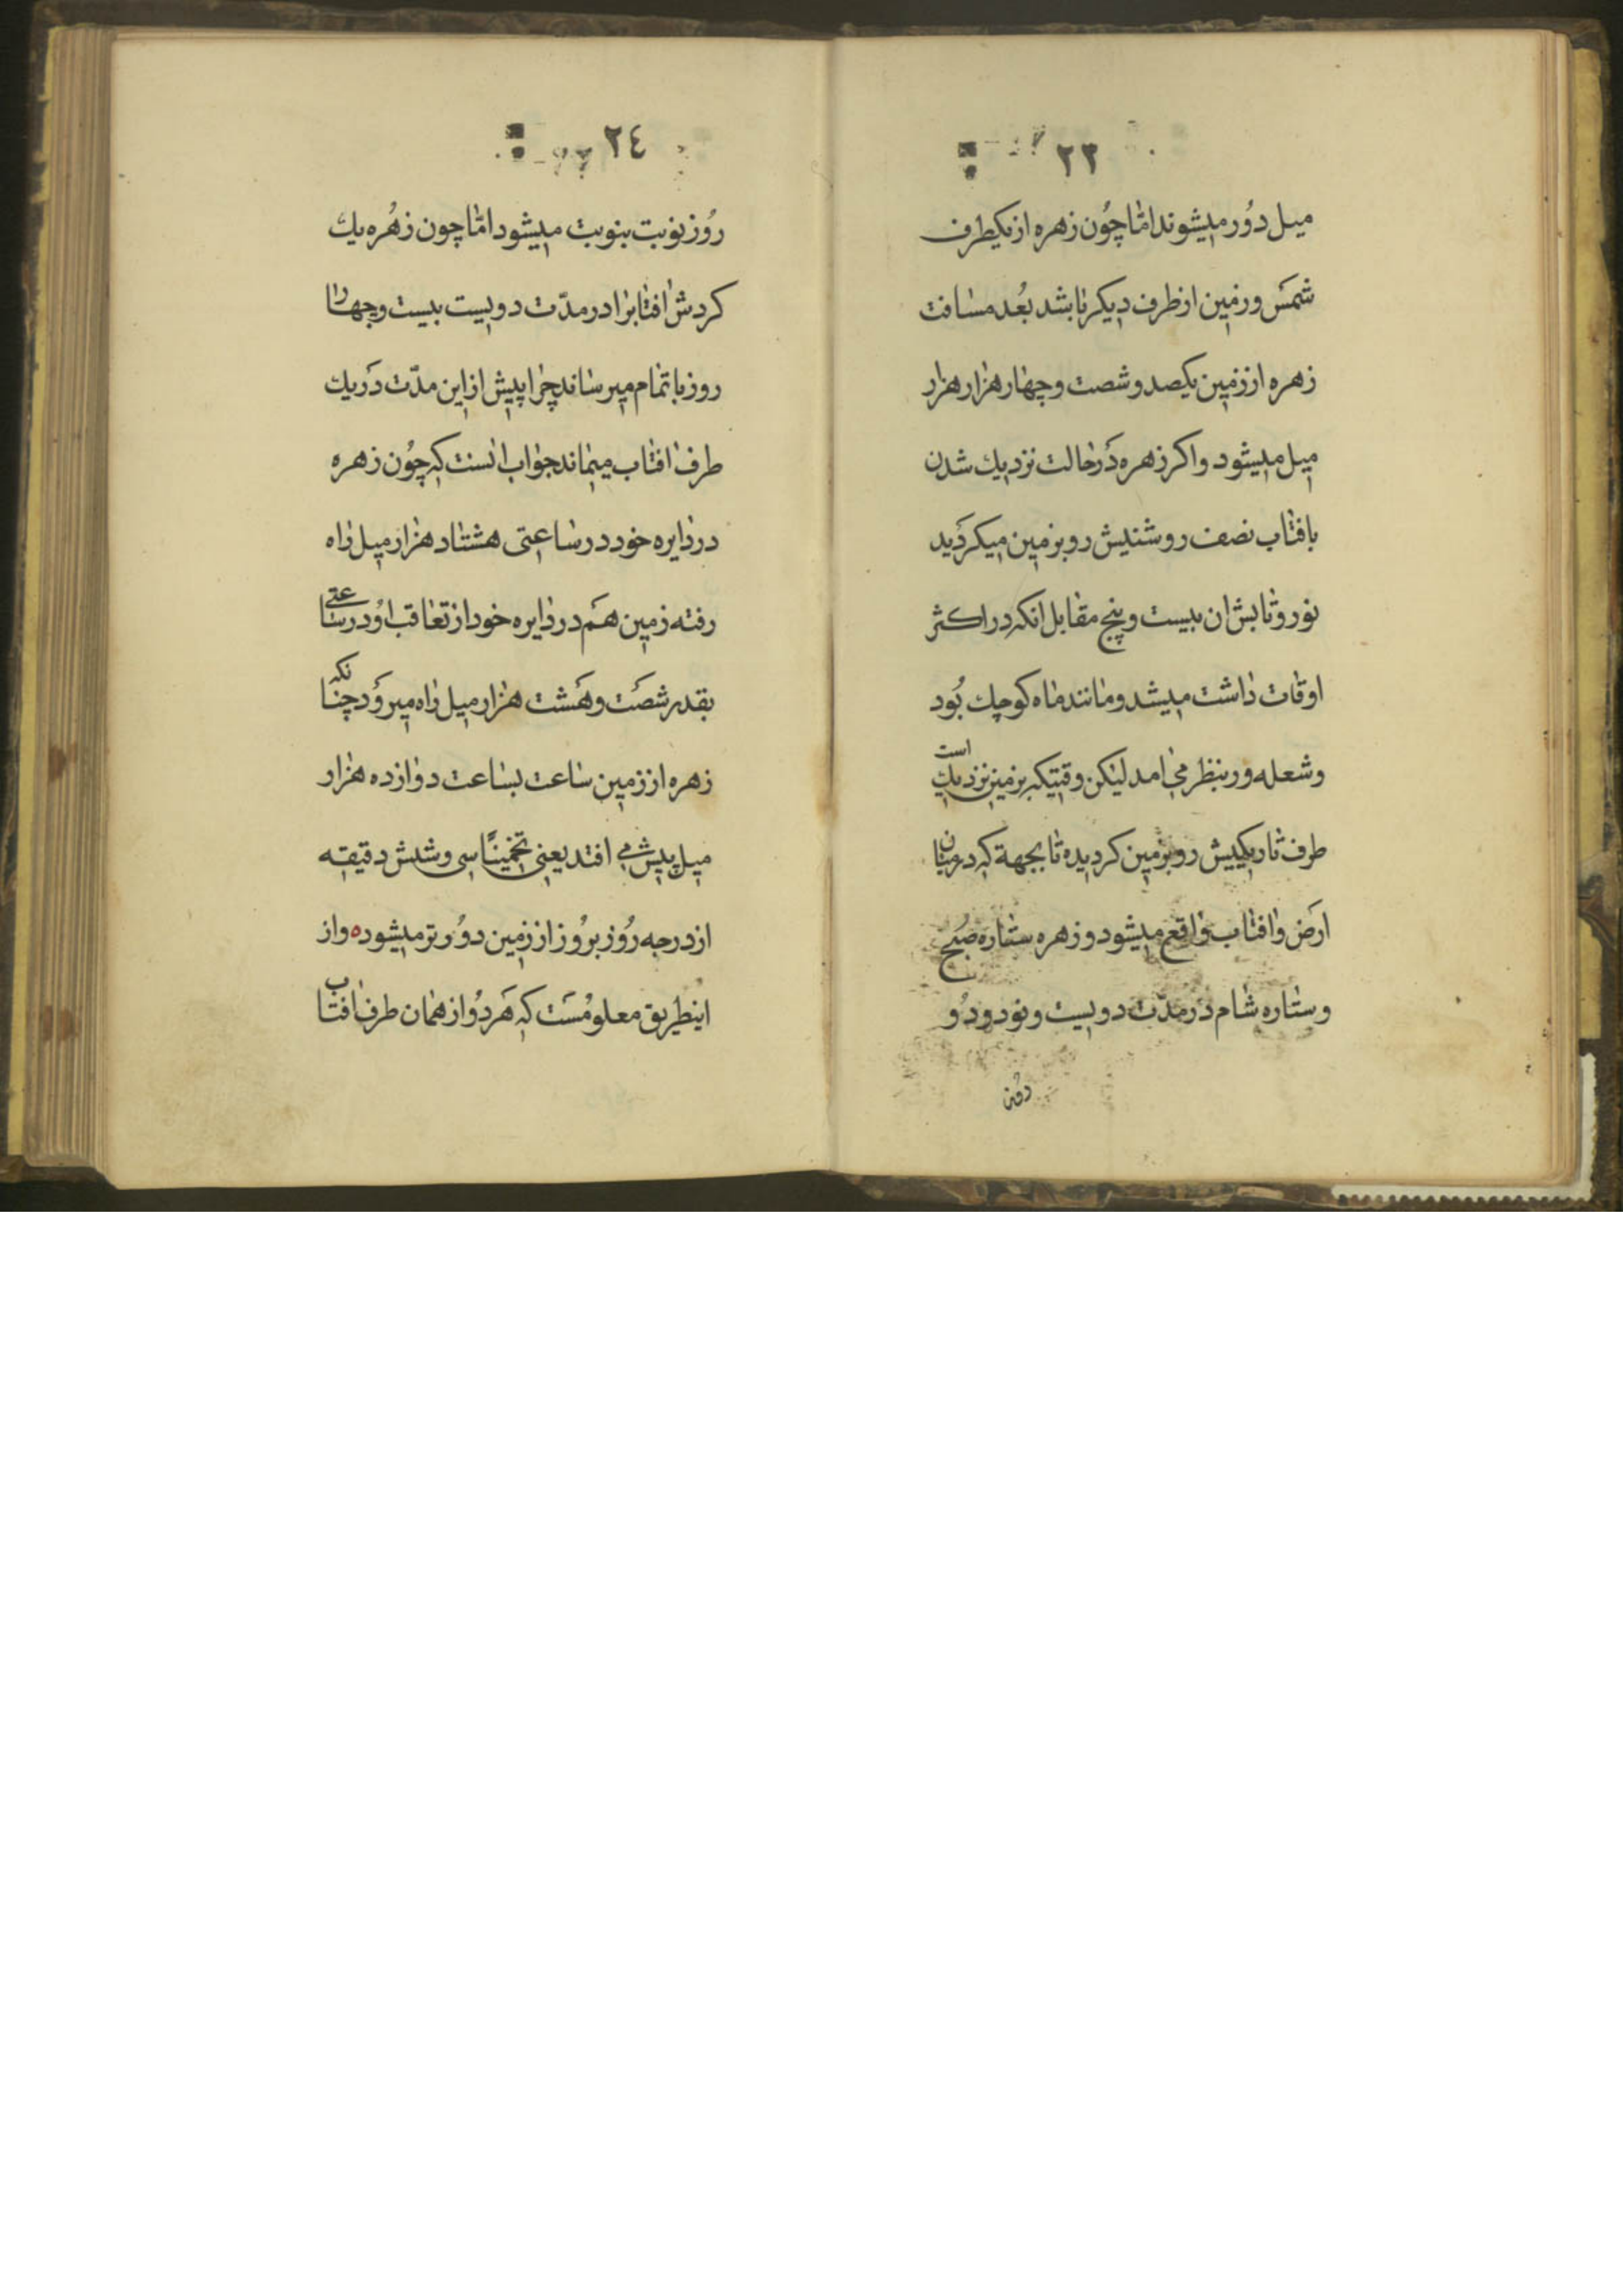 ٢٣
میل دُور میشوند امّا چُون زهره از یکیطرف
شمَس و زمین از ظرف دیکر باشد بُعد مسافت
زهره از زمین یکصد و شصت و چهار هزار هزار
میل میشود و اکر زهره دَر حالت نزدیك شدن
بافتاب نصف روشنیش رو بزمین میکردَید
نور و تابش ان بیست و پنج مقابل انکه در اکثر
اوقات داشت میشد و مانند ماه کوچك بُود
و شعله ور بنظر می امد لیکن وقتیکه بزمین نزدیك است
طرف تاریکیش رو بزمین کردیده تا بجهة که درمیان
ارَض و افتاب واقع میشود و زهره ستاره صُبح
و ستاره شام در مدّت دویست و نود و دُو
روُز
٢٤
روُز نوبت بنوبت میشود امّا چون زهُره یك
کردش افتابرا در مدّت دویست بیست و چهار
روز باتمام میرساند چرا پیش از این مدّت دَر یك
طرف افتاب میماند جواب انست که چوُن زهره
در دایره خود در ساعتی هشتاد هزار میل راه
رفته زمین همَ در دایره خود از تعاقب اوُ در ساعتی
بقدر شصَت و هَشت هزار میل راه میروَد چنانکه
زهره از زمین ساعت بساعت دوازده هزار
میل پیش می افتد یعنی تخمینًا سی و شش دقیقه
از درجه روُز بروُز از زمین دوُرتر میشود ه و از
اینطریق معلوُمسَت که هَر دوُ از همان طرف افتاب